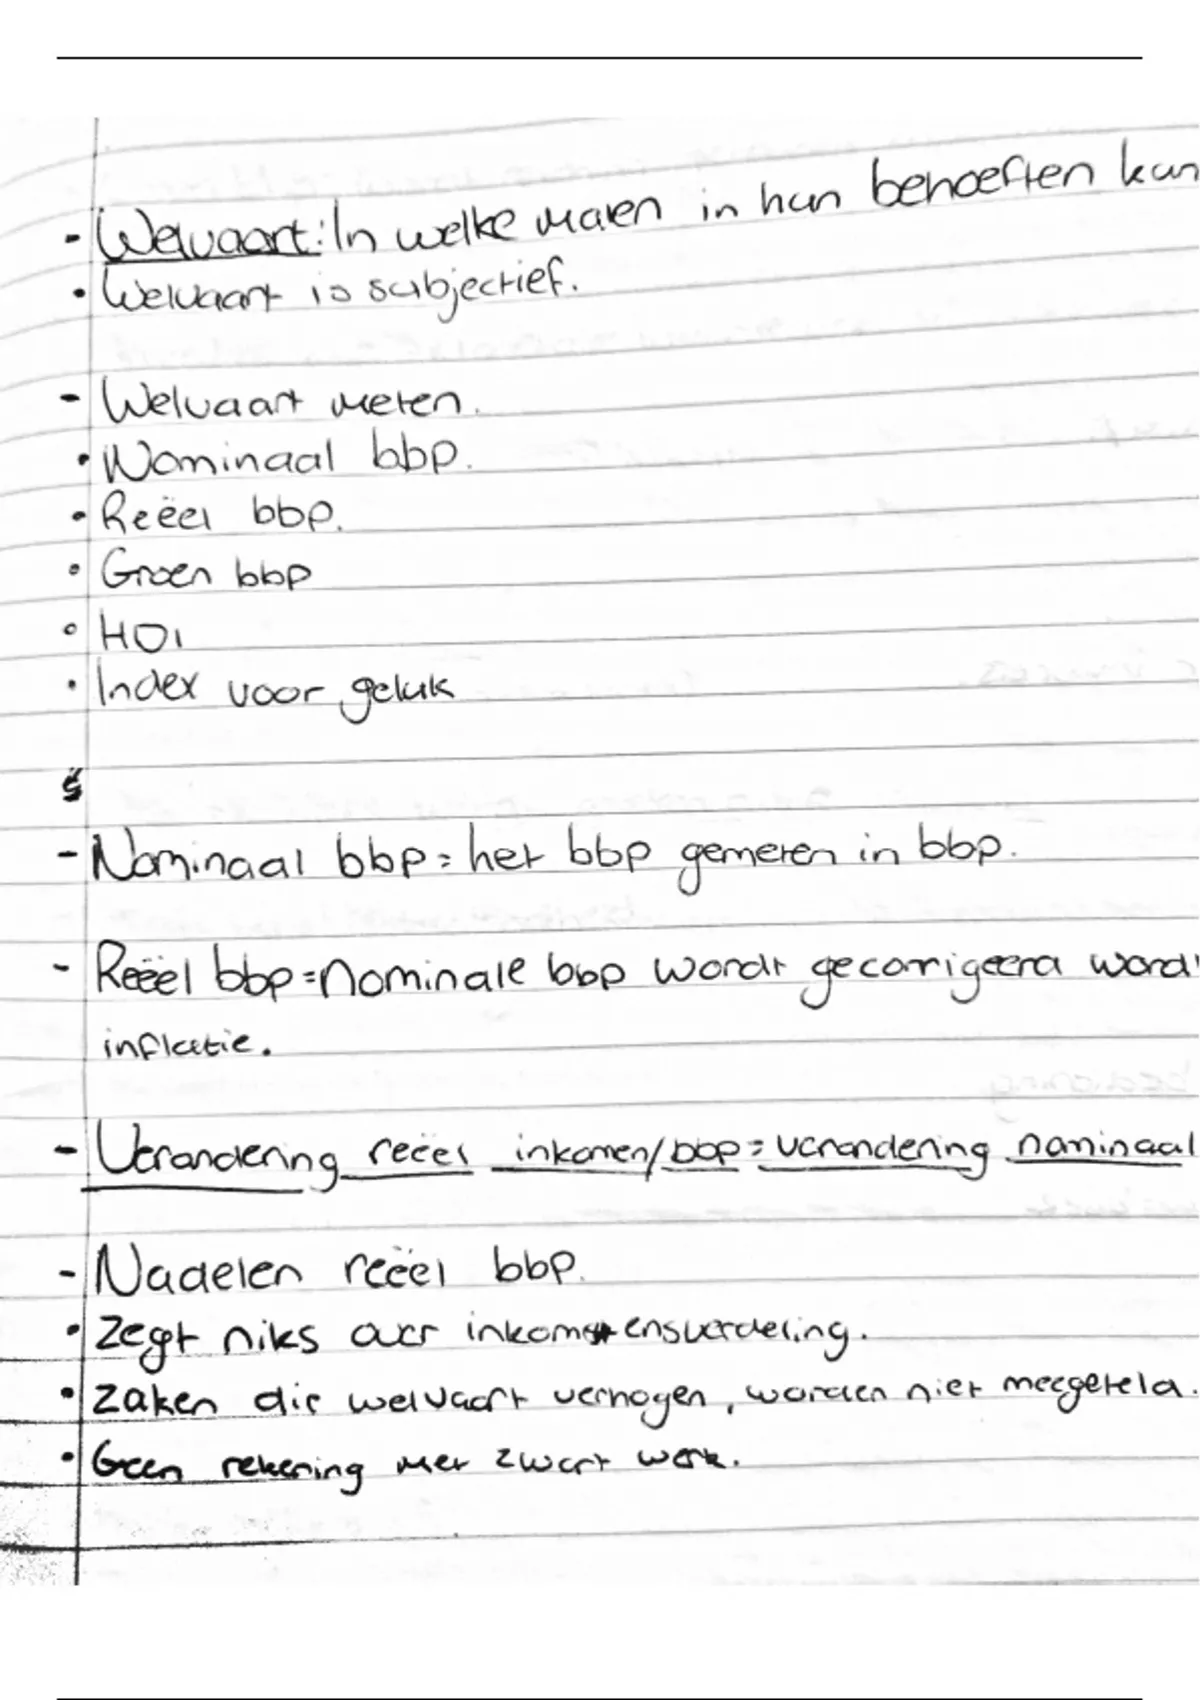 - Welvaart: In welke maten in hun behoeften kan
• Welvaart is subjectief.
- Welvaart meten.
• Nominaal bbp.
• Reëel bbp.
• Groen bbp
• HDI
• Index voor geluk
- Nominaal bbp = het bbp gemeten in bbp.
- Reëel bbp = nominale bbp wordt gecorrigeerd word
inflatie.
- Verandering reëel inkomen/bbp = verandering nominaal
- Nadelen reëel bbp.
• Zegt niks over inkomstensverdeling.
• Zaken die welvaart verhogen, worden niet meegeteld.
• Geen rekening met zwart werk.